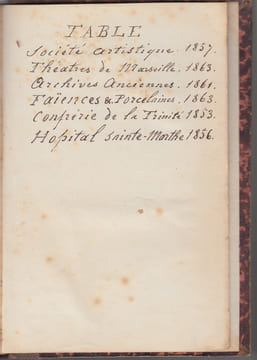 TABLE
Société artistique. 1857.
Théatres de Marseille. 1863.
Archives Anciennes. 1861.
Faïences & Porcelaines. 1863.
Confrérie de la Trinité 1853.
Hopital Sainte-Marthe 1856.